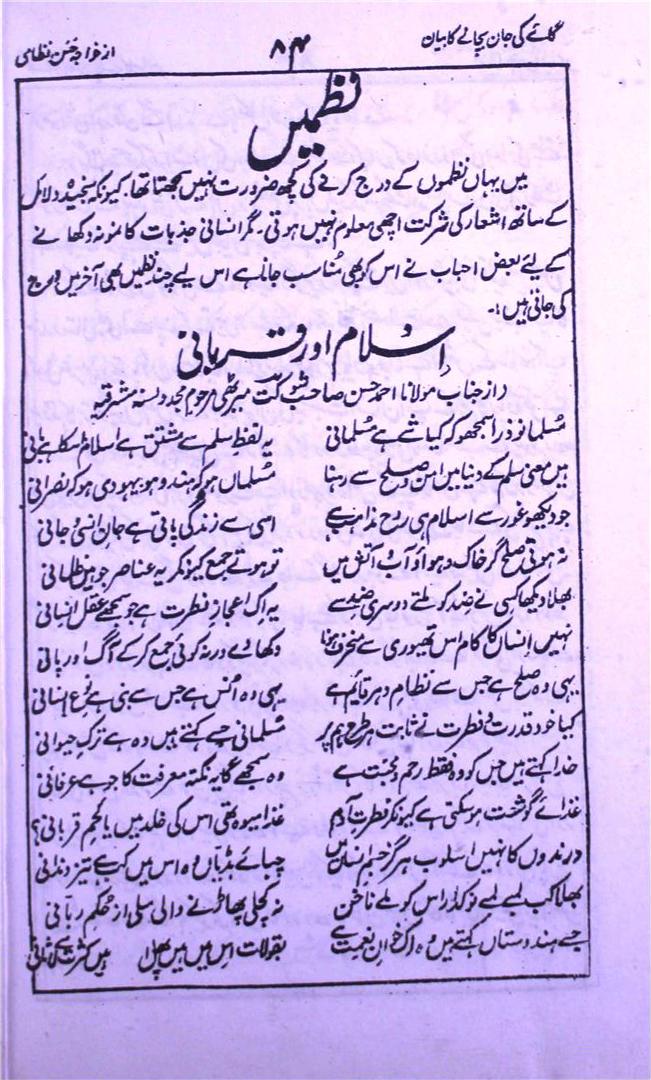 گائے کی جان بچانے کا بیان
۸۴
از خواجہ حسن نظامی
نظمیں
میں یہاں نظموں کے درج کرنے کی کچھ ضرورت نہیں سمجھتا تھا۔ کیونکہ سنجیدہ دلائل
کے ساتھ اشعار کی شرکت اچھی معلوم نہیں ہوتی۔ مگر انسانی جذبات کا نمونہ دکھانے
کے لئے بعض احباب نے اس کو بھی مناسب جانا ہے اس لیے چند نظمیں بھی آخر میں درج
کی جاتی ہیں:۔
اسلام اور قربانی
(از جناب مولانا احمد حسن صاحب شوکت میرٹھی مرحوم مجدد السنہ مشرقیہ)
مسلمانو ذرا سمجھو کہ کیا شے ہے مسلمانی یہ لفظ سلم سے مشتق ہے اسلام
ہیں معنی سلم کے دنیا میں امن و صلح سے رہنا مسلماں ہو کہ ہندو ہو یہودی ہو کہ نصرانی
جو دیکھو غور سے اسلام ہی روح مذاہب ہے اسی سے زندگی پاتی ہے جان انسی و جانی
نہ ہوتی صلح گر خاک و ہوا و آب و آتش میں تو ہوتے جمع کیونکر یہ عناصر جو ہیں ظلمانی
بھلا دیکھا کسی نے ضد کو ملتے دوسری ضد سے یہ اک اعجاز فطرت ہے جو سمجھے عقل انسانی
نہیں انساں کا کام اس تھیوری سے منحرف ہونا دکھائے ورنہ کوئی جمع کر کے آگ اور پانی
یہی وہ صلح ہے جس سے نظام دہر قائم ہے یہی وہ انس ہے جس سے بنی ہے نوع انسانی
کیا خود قدرت فطرت نے ثابت ہر طرح ہم پر مسلمانی جسے کہتے ہیں وہ ہے ترک حیوانی
خدا کہتے ہیں جس کو وہ فقط رحم و محبت ہے وہ سمجھے گا یہ نکتہ معرفت کا جو ہے عرفانی
غذائے گوشت ہو سکتی ہے کیونکر فطرت آدم غذا میوہ تھی اس کی خلد میں یا لحم قربانی؟
درندوں کا نہیں اسلوب ہرگز جسم انساں میں چبائے ہڈیاں وہ اس میں کب ہے تیز دندانی
بھلا کب لمبے لمبے نوکدار اس کو ملے ناخن نہ کچلی پھاڑنے والی ملی از حکم ربانی
جسے ہندوستاں کہتے ہیں وہ اک خوان نعمت ہے بقولات اس میں ہیں پھل ہیں کثرت سے